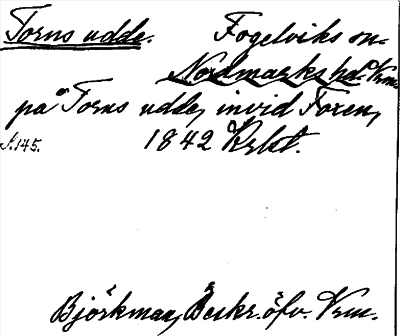 Torns udde. Fogelviks sn.
Nordmarks hd. Vrm.
på Torns udde, invid Foxen,
s. 145. 1842
Björkman, Beskr. öfv. Vrm.